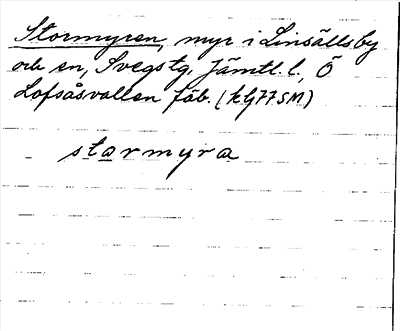 Stormyren, myr i Linsälls by
och sn, Svegs tg, Jämtl. l., Ö
Lofsåsvallen fäb. (kG77SM)
starmyra